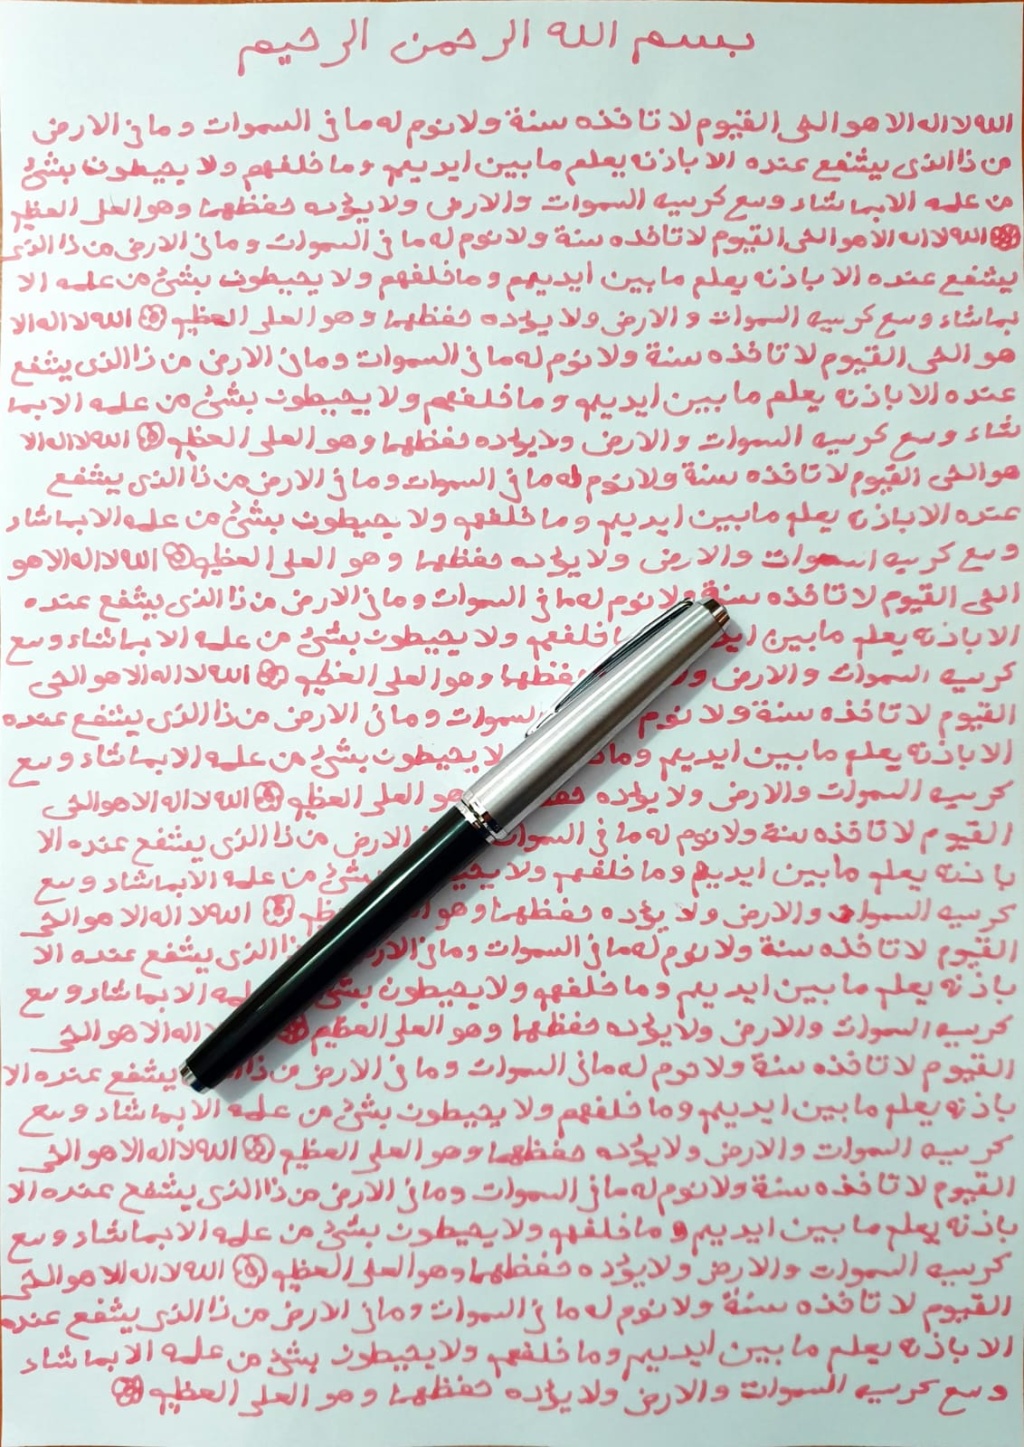 بسم الله الرحمن الرحيم
الله لا اله الا هو الحى القيوم لا تاخذه سنة ولا نوم له ما فى السموات وما فى الارض
من ذا الذى يشفع عنده الا باذنه يعلم ما بين ايديهم وما خلفهم ولا يحيطون بشئ
من علمه الا بما شاء وسع كرسيه السموات والارض ولا يؤده حفظهما وهو العلى العظيم
الله لا اله الا هو الحى القيوم لا تاخذه سنة ولا نوم له ما فى السموات وما فى الارض من ذا الذى
يشفع عنده الا باذنه يعلم ما بين ايديهم وما خلفهم ولا يحيطون بشئ من علمه الا
بما شاء وسع كرسيه السموات والارض ولا يؤده حفظهما وهو العلى العظيم الله لا اله الا
هو الحى القيوم لا تاخذه سنة ولا نوم له ما فى السموات وما فى الارض من ذا الذى يشفع
عنده الا باذنه يعلم ما بين ايديهم وما خلفهم ولا يحيطون بشئ من علمه الا بما
شاء وسع كرسيه السموات والارض ولا يؤده حفظهما وهو العلى العظيم الله لا اله الا
هو الحى القيوم لا تاخذه سنة ولا نوم له ما فى السموات وما فى الارض من ذا الذى يشفع
عنده الا باذنه يعلم ما بين ايديهم وما خلفهم ولا يحيطون بشئ من علمه الا بما شاء
وسع كرسيه السموات والارض ولا يؤده حفظهما وهو العلى العظيم الله لا اله الا هو
الحى القيوم لا تاخذه سنة ولا نوم له ما فى السموات وما فى الارض من ذا الذى يشفع عنده
الا باذنه يعلم ما بين خلفهم ولا يحيطون بشئ من علمه الا بما شاء وسع
كرسيه السموات والارض حفظهما وهو العلى العظيم الله لا اله الا هو الحى
القيوم لا تاخذه سنة ولا نوم السموات وما فى الارض من ذا الذى يشفع عنده
الا باذنه يعلم ما بين ايديهم يحيطون بشئ من علمه الا بما شاء وسع
كرسيه السموات والارض ولا يؤده وهو العلى العظيم الله لا اله الا هو الحى
القيوم لا تاخذه سنة ولا نوم له ما فى السموات الارض من ذا الذى يشفع عنده الا
باذنه يعلم ما بين ايديهم وما خلفهم ولا بشئ من علمه الا بما شاء وسع
كرسيه السموات والارض ولا يؤده حفظهما الله لا اله الا هو الحى
القيوم لا تاخذه سنة ولا نوم له ما فى السموات وما فى الذى يشفع عنده الا
باذنه يعلم ما بين ايديهم وما خلفهم ولا يحيطون الا بما شاء وسع
كرسيه السموات والارض ولا يؤده حفظهما وهو العلى العظيم اله الا هو الحى
القيوم لا تاخذه سنة ولا نوم له ما فى السموات وما فى الارض من يشفع عنده الا
باذنه يعلم ما بين ايديهم وما خلفهم ولا يحيطون بشئ من علمه الا بما شاء وسع
كرسيه السموات والارض ولا يؤده حفظهما وهو العلى العظيم الله لا اله الا هو الحى
القيوم لا تاخذه سنة ولا نوم له ما فى السموات وما فى الارض من ذا الذى يشفع عنده الا
باذنه يعلم ما بين ايديهم وما خلفهم ولا يحيطون بشئ من علمه الا بما شاء وسع
كرسيه السموات والارض ولا يؤده حفظهما وهو العلى العظيم الله لا اله الا هو الحى
القيوم لا تاخذه سنة ولا نوم له ما فى السموات وما فى الارض من ذا الذى يشفع عنده
الا باذنه يعلم ما بين ايديهم وما خلفهم ولا يحيطون بشئ من علمه الا بما شاء
وسع كرسيه السموات والارض ولا يؤده حفظهما وهو العلى العظيم